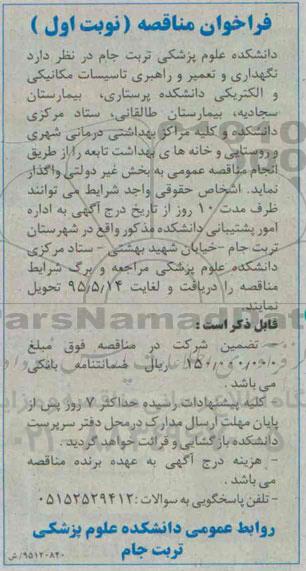 فراخوان مناقصه (نوبت اول)
دانشکده علوم پزشکی تربت جام در نظر دارد
نگهداری و تعمیر و راهبری تاسیسات مکانیکی
و الکتریکی دانشکده پرستاری، بیمارستان
سجادیه، بیمارستان طالقانی، ستاد مرکزی
دانشکده و کلیه مراکز بهداشتی درمانی شهری
و روستایی و خانه های بهداشت تابعه را از طریق
انجام مناقصه عمومی به بخش غیر دولتی واگذار
نماید. اشخاص حقوقی واجد شرایط می توانند
ظرف مدت ۱۰ روز از تاریخ درج آگهی به اداره
امور پشتیبانی دانشکده مذکور واقع در شهرستان
تربت جام -خیابان شهید بهشتی - ستاد مرکزی
دانشکده علوم پزشکی مراجعه و برگ شرایط
مناقصه را دریافت و لغایت ۹۵/۵/۱۴ تحویل
نمایند.
قابل ذکر است:
- تضمین شرکت در مناقصه فوق مبلغ
ریال ضمانتنامه بانکی
می باشد.
- کلیه پیشنهادات رسیده حداکثر ۷ روز پس از
پایان مهلت ارسال مدارک در محل دفتر سرپرست
دانشکده بازگشایی و قرائت خواهد گردید.
- هزینه درج آگهی به عهده برنده مناقصه
می باشد.
- تلفن پاسخگویی به سوالات: ۰۵۱۵۲۵۲۹۴۱۲
روابط عمومی دانشکده علوم پزشکی
تربت جام
۹۵۱۲۰۸۲۰/ش
ParsNamadData